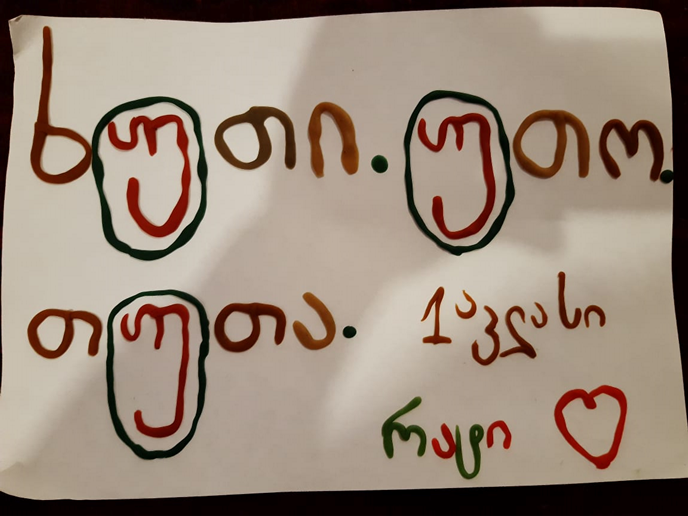 ხუთი. უთო.
თუთა. 1ა კლასი
რატი